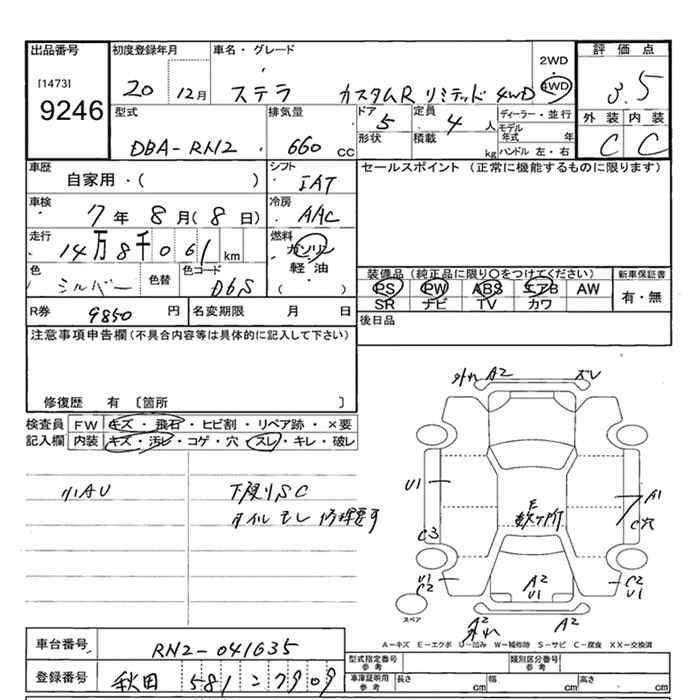 出品番号 初度登録年月 車名・グレード 2WD 評価点
[1473] 20 12月 ステラ カスタムR リミテッド 4WD 4WD 3.5
9246
型式 排気量 ドア 5 定員 4 人 ディーラー・並行 外装 内装
DBA-RN2 660 cc 形状 積載 kg モデル年式 年 ハンドル 左・右 C C
車歴 自家用・( ) シフト IAT セールスポイント (正常に機能するものに限ります)
車検 7年 8月 (8日) 冷房 AAC
走行 14万8千061km 燃料 ガソリン
色 シルバー 色替 色コード D6S 軽油 ( ) 装備品 (純正品に限り○をつけてください) 新車保証書
PS PW ABS エアB AW 有・無
SR ナビ TV カワ
R券 9850 円 名変期限 月 日 後日品
注意事項申告欄 (不具合内容等は具体的に記入して下さい)
修復歴 有 [箇所 ]
検査員 FW キズ・飛石・ヒビ割・リペア跡・×要
記入欄 内装 キズ・汚レ・コゲ・穴・スレ・キレ・破レ
外れ A2 ズレ
小AU 下廻りSC
オイルモレ 修理要す
U1 E 数ヶ所 A1
C3 C穴
U1 C2 A2 U1 C2 U1
スペア A2 外れ A2
A-キズ E-エクボ U-凹み W-補修跡 S-サビ C-腐食 XX-交換済
車台番号 RN2-041635 型式指定番号 参考 類別区分番号 参考
登録番号 秋田 581 こ 7909 車庫証明用 参考 長さ cm 幅 cm 高さ cm